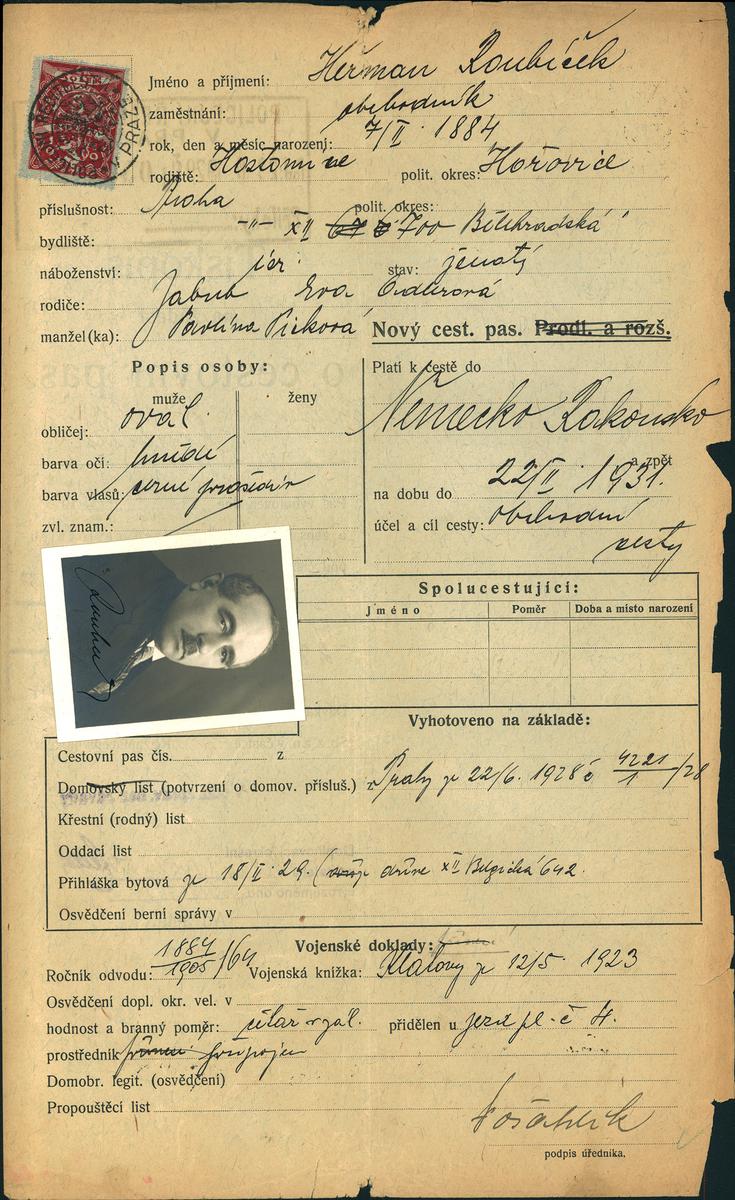 Jméno a příjmení: Heřman Roubíček
zaměstnání: obchodník
rok, den a měsíc narození: 7/II. 1884
rodiště: Hostomice polit. okres: Hořovice
příslušnost: Praha polit. okres:
bydliště: -"- XII 67 6 700 Bělehradská
náboženství: izr. stav: ženatý
rodiče: Jakub Eva
manžel(ka): Pavlína Picková
Nový cest. pas. Prodl. a rozš.
Popis osoby:
muže ženy
obličej: oval.
barva očí: hnědé
barva vlasů: černé prošediv
zvl. znam.:
Platí k cestě do
Německo Rakousko
a zpět
na dobu do 22/II. 1931.
účel a cíl cesty: obchodní
cesty
Spolucestující:
Jméno Poměr Doba a místo narození
Vyhotoveno na základě:
Cestovní pas čís. z
Domovský list (potvrzení o domov. přísluš.) z Prahy ze 22/6. 1928 č 4221/1 /28
Křestní (rodný) list
Oddací list
Přihláška bytová ze 18/II. 29. ( dříve XII Belgická 642.
Osvědčení berní správy v
Vojenské doklady:
Ročník odvodu: 1884/1905/64 Vojenská knížka: Klatovy ze 12/5. 1923
Osvědčení dopl. okr. vel. v
hodnost a branný poměr: přidělen u jezd pl. č 4.
prostředník
Domobr. legit. (osvědčení)
Propouštěcí list
podpis úředníka.